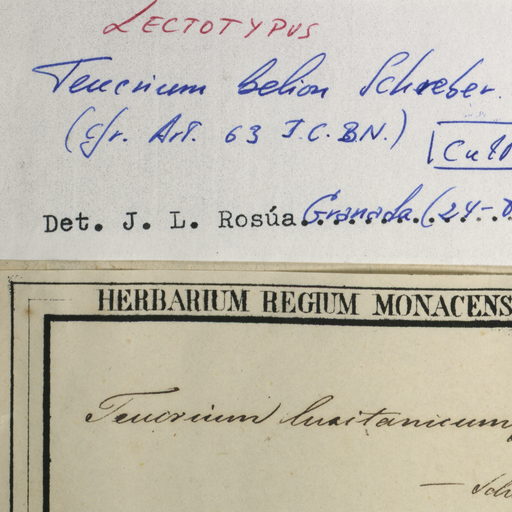 LECTOTYPUS
Teucrium belion Schreber.
(cfr. Art. 63 I.C.B.N.)
Det. J. L. Rosúa Granada (24-
HERBARIUM REGIUM MONACENS
Teucrium lusitanicum
— Sch